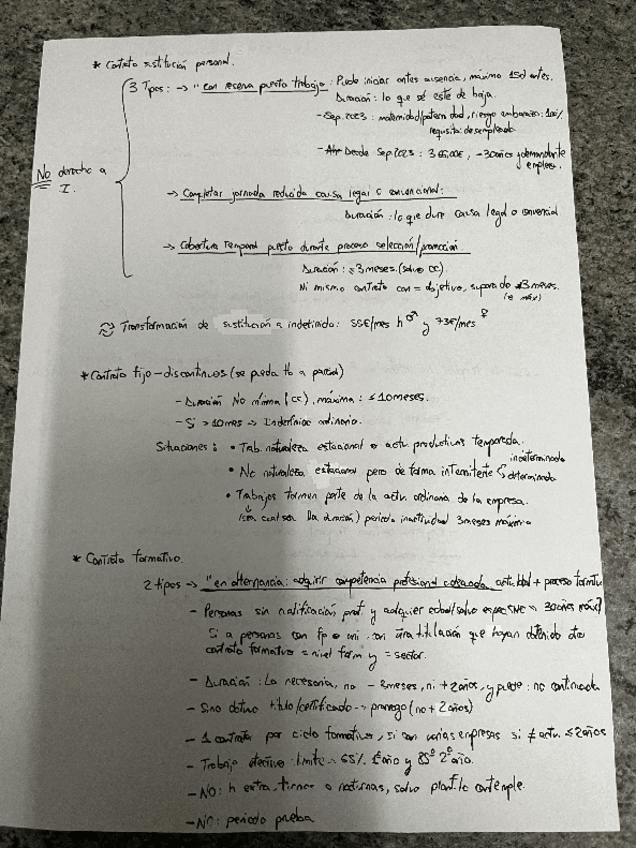 * Contrato sustitución personal.
3 Tipos: → "con reserva puesto trabajo: Puede iniciar antes ausencia, máximo 15d antes.
Duración: lo que se esté de baja.
- Sep. 2023: maternidad/paternidad, riesgo embarazo: 100%
requisito: desempleado
- Desde Sep 2023: 366€/mes, -30años y demandante
empleo.
No derecho a
I.
→ Completar jornada reducida causa legal o convencional:
Duración: lo que dure causa legal o convencial
→ Cobertura Temporal puesto durante proceso selección/promoción
Duración: ≤3meses.(salvo CC).
Ni mismo contrato con = objetivo, superado 3 meses.
(e máx)
Transformación de sustitución a indefinido: 55€/mes h♂ y 73€/mes ♀
* Contrato fijo-discontinuos (se pueda tto a parcial)
- Duración No mínima (CC). máxima: ≤10meses.
- Si >10mes → Indefinido ordinario.
Situaciones: • Trab. naturaleza estacional o actv productivas temporada.
• No naturaleza estacional pero de forma intermitente indeterminada
determinada
• Trabajos formen parte de la actv. ordinaria de la empresa.
periodo inactividad 3meses máximo
* Contrato formativo.
2 tipos → "en alternancia: adquirir competencia profesional adecuada actividad + proceso formtv
- Personas sin cualificación prof. y cualquier edad/salvo 30años máx)
Si a personas con fp o uni. con una titulación que hayan obtenido otro
contrato formativo = nivel form y = sector.
- Duración: La necesaria, no - 3meses, ni +2años, y puede: no continuada
- Si no obtuvo título/certificado → prorroga (no + 2años)
- 1 contrato por ciclo formativo, si con varias empresas si ≠ actv. ≤2años
- Trabajo efectivo: limite 65% 1º año y 85% 2º año.
- NO: h extra, turnos o nocturnas, salvo planf. lo contemple.
- NO: periodo prueba